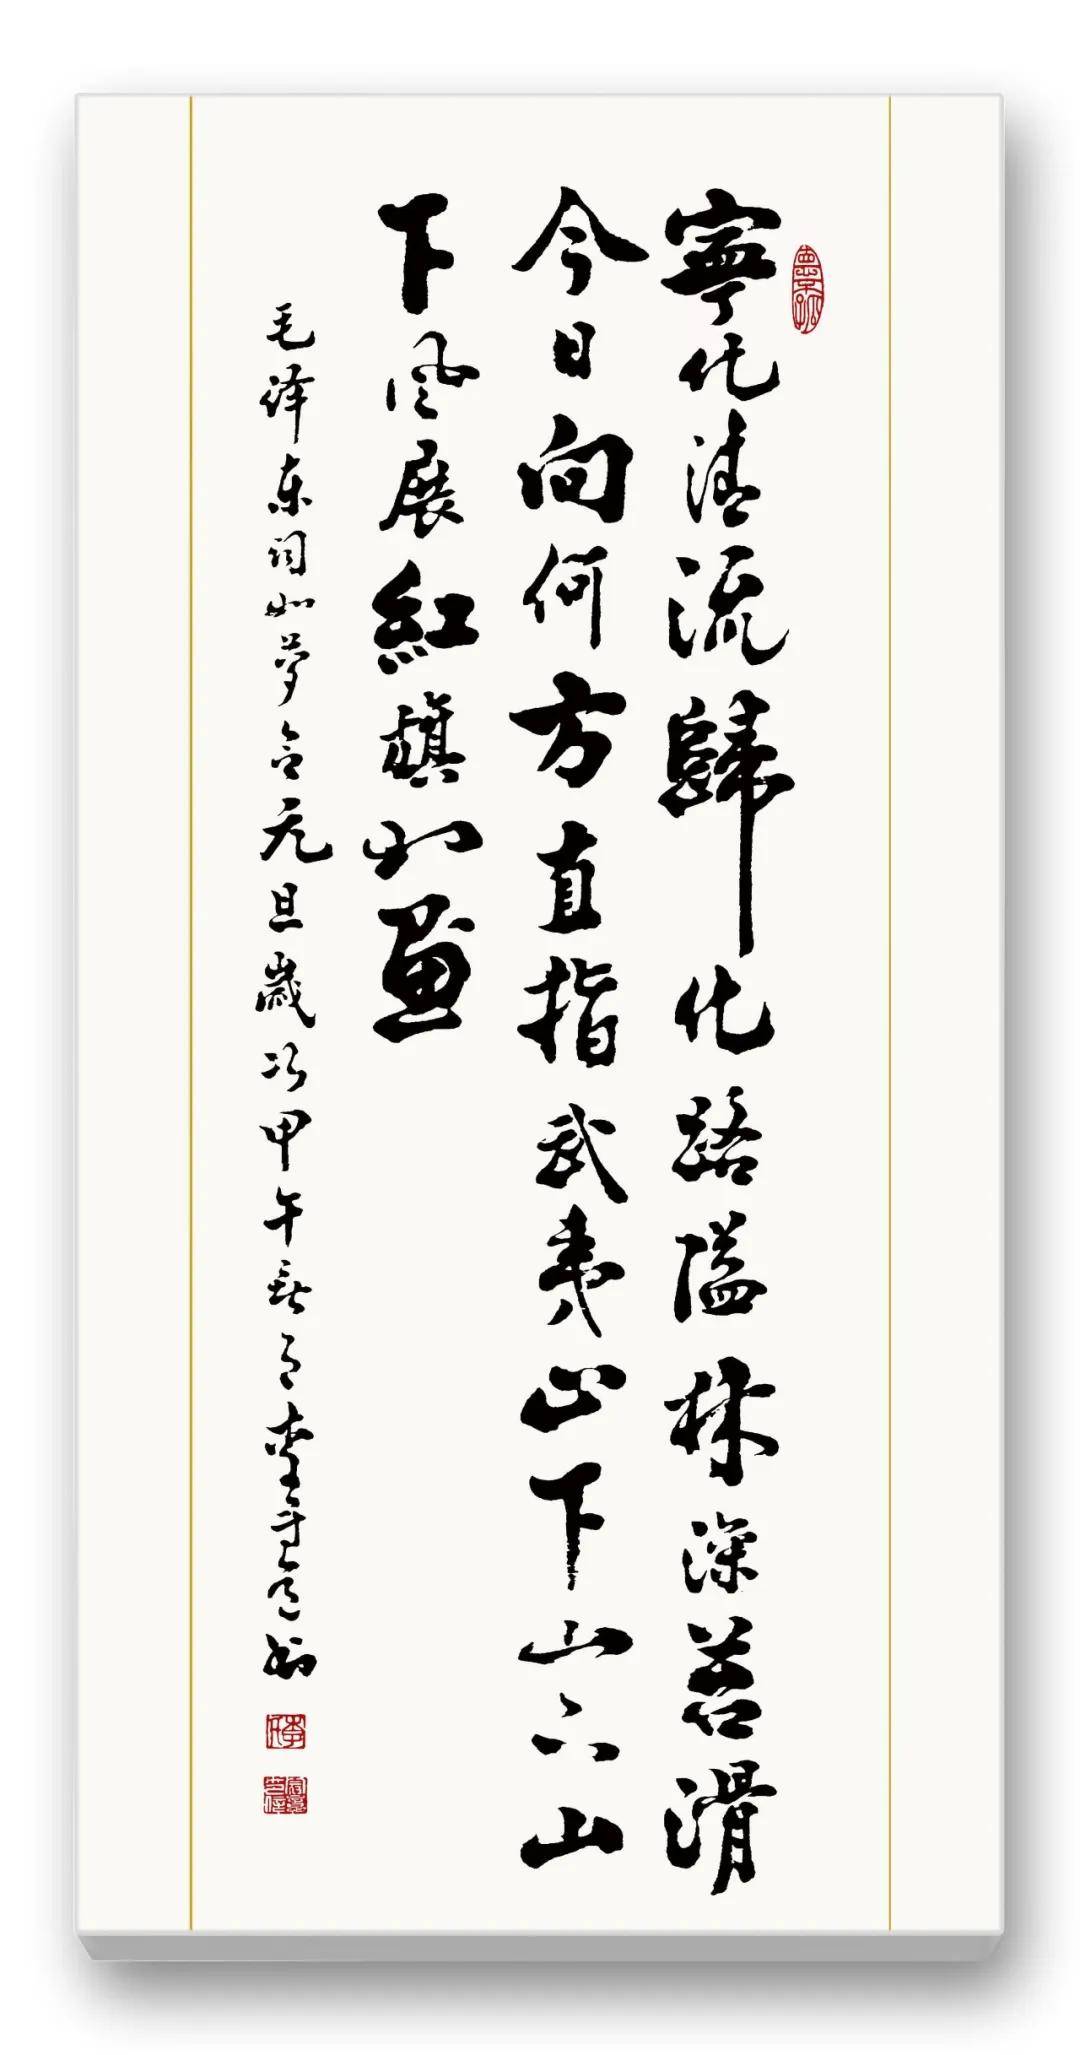 寧化清流歸化路隘林深苔滑
今日向何方直指武夷山下山下山
下風展紅旗如畫
毛泽东词如梦令元旦歲次甲午月李书